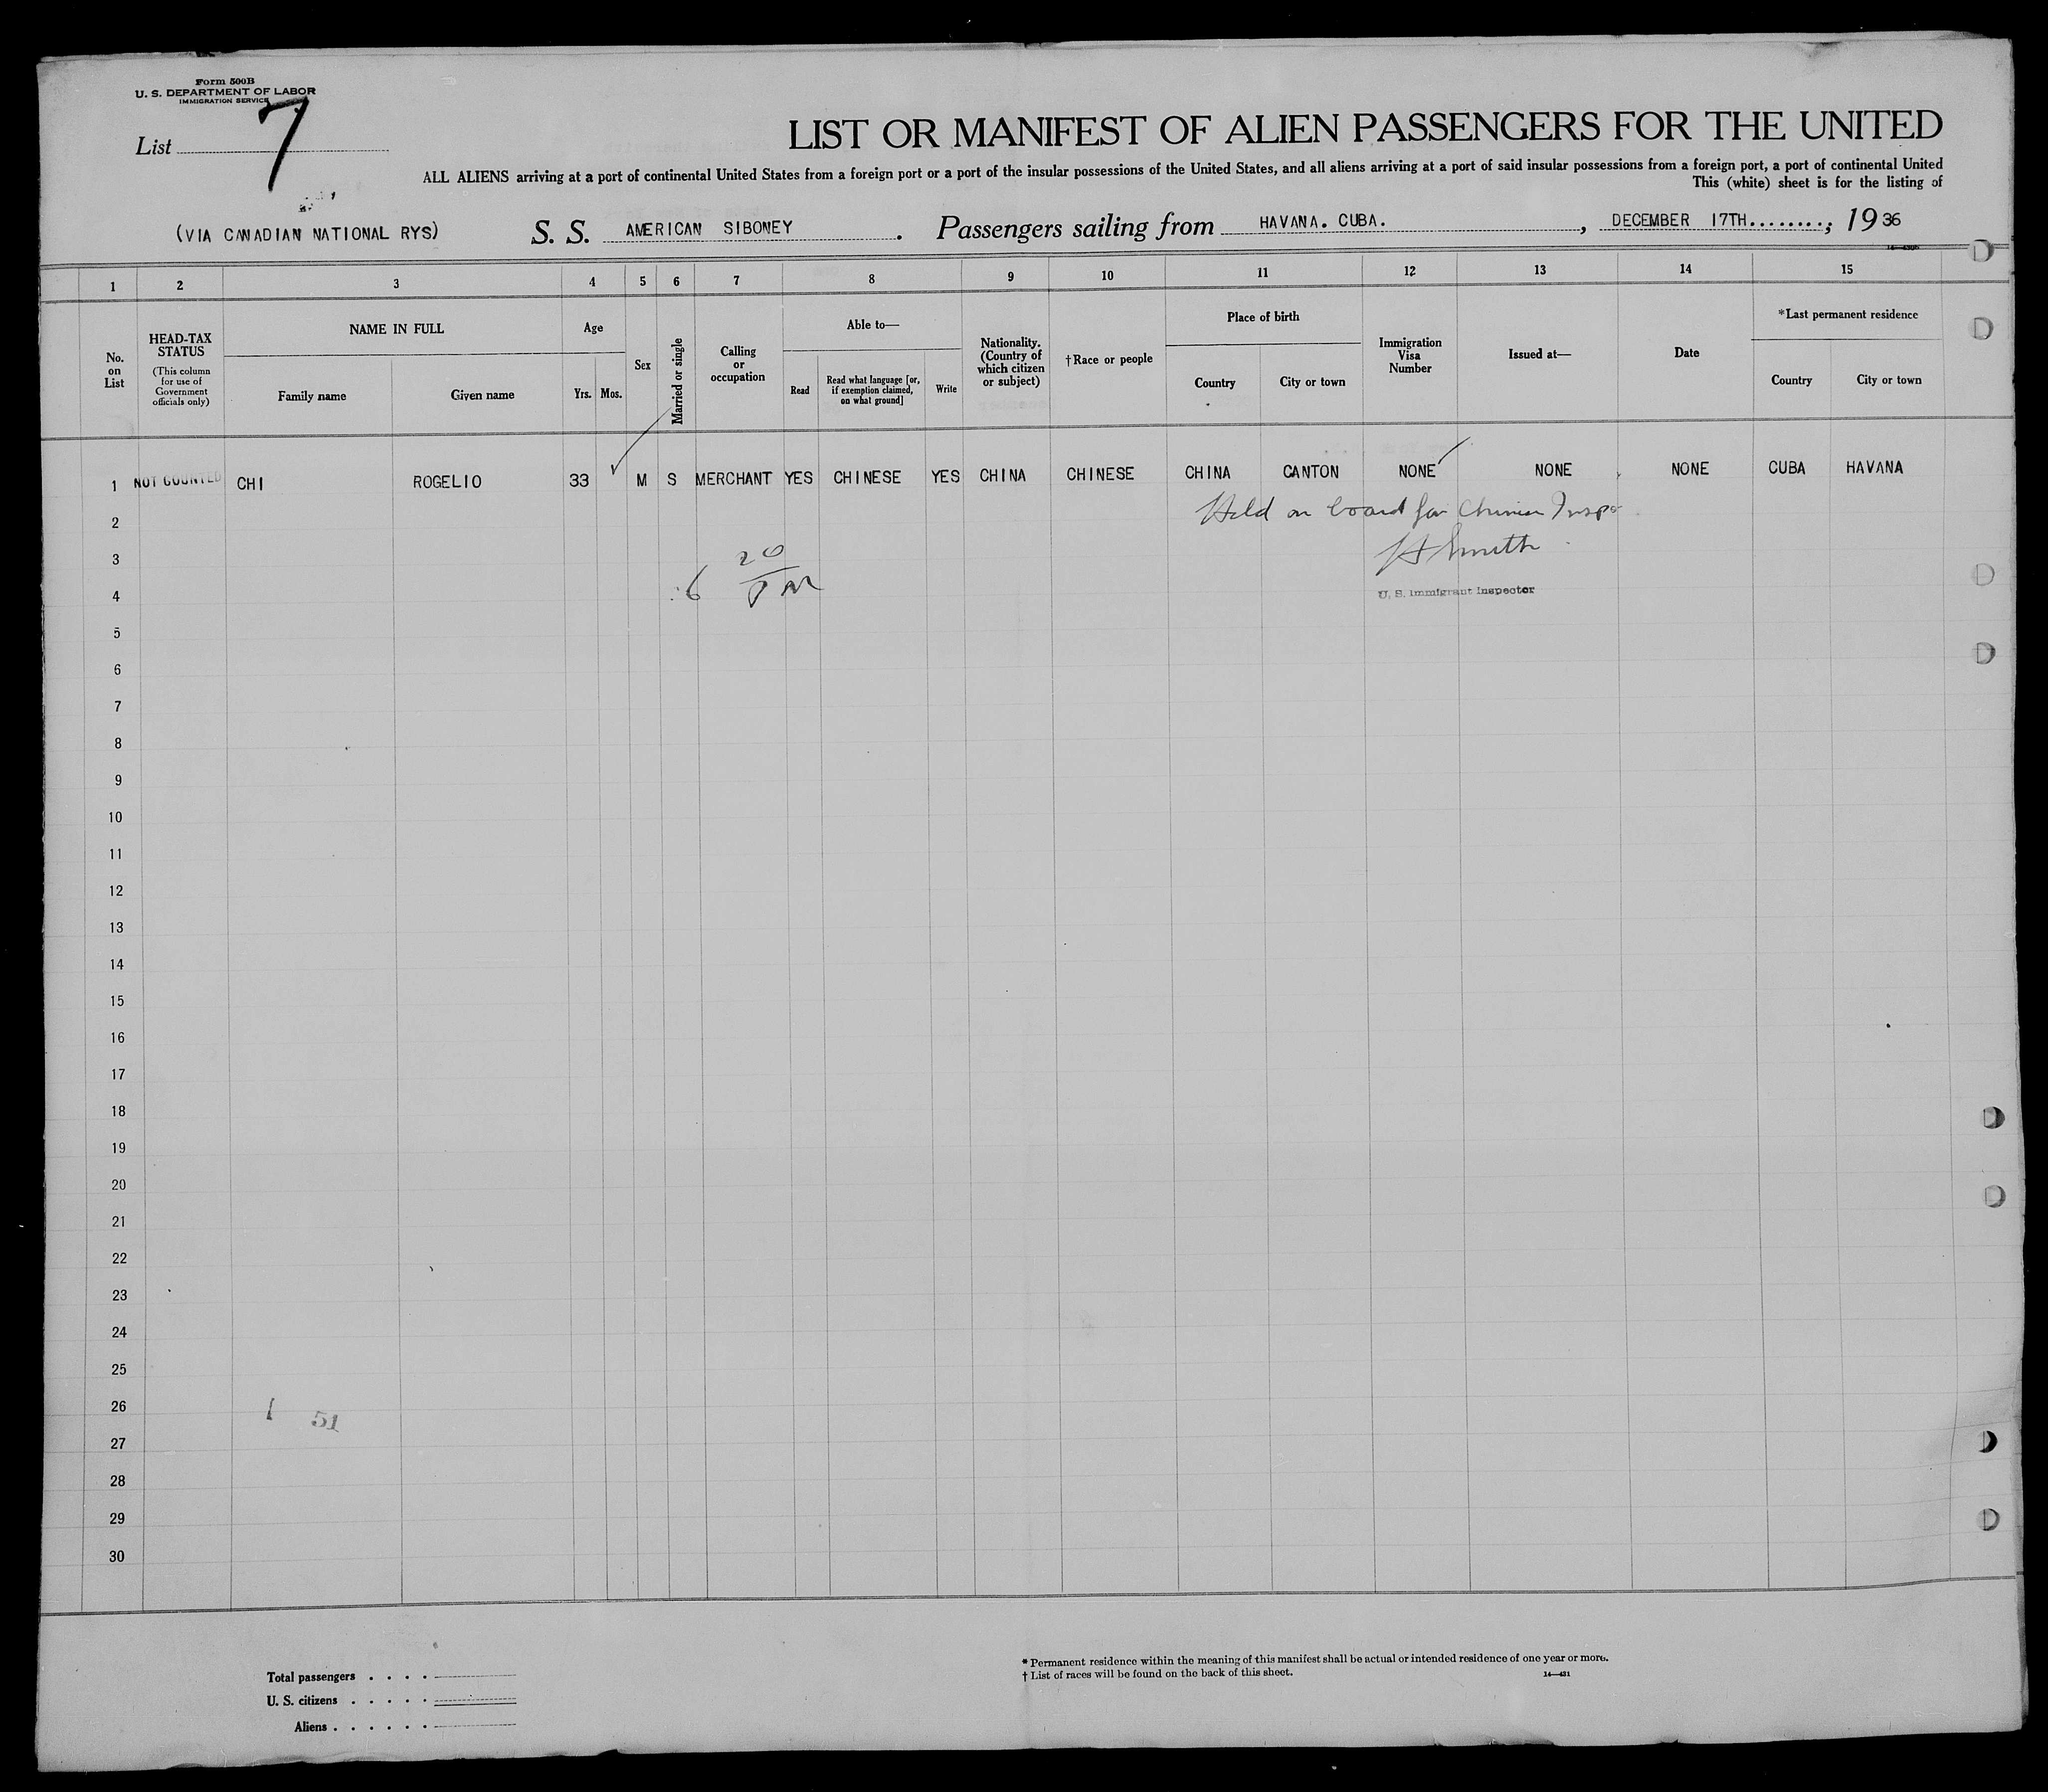 Form 500B
U. S. DEPARTMENT OF LABOR
IMMIGRATION SERVICE
List 7
LIST OR MANIFEST OF ALIEN PASSENGERS FOR THE UNITED
ALL ALIENS arriving at a port of continental United States from a foreign port or a port of the insular possessions of the United States, and all aliens arriving at a port of said insular possessions from a foreign port, a port of continental United
This (white) sheet is for the listing of
(VIA CANADIAN NATIONAL RYS) S. S. AMERICAN SIBONEY. Passengers sailing from HAVANA. CUBA. , DECEMBER 17TH........, 1936
1 2 3 4 5 6 7 8 9 10 11 12 13 14 15
No. on List
HEAD-TAX STATUS
(This column for use of Government officials only)
NAME IN FULL
Family name
Given name
Age
Yrs.
Mos.
Sex
Married or single
Calling or occupation
Able to—
Read
Read what language [or, if exemption claimed, on what ground]
Write
Nationality. (Country of which citizen or subject)
†Race or people
Place of birth
Country
City or town
Immigration Visa Number
Issued at—
Date
*Last permanent residence
Country
City or town
1 NOT COUNTED CHI ROGELIO 33 M S MERCHANT YES CHINESE YES CHINA CHINESE CHINA CANTON NONE NONE NONE CUBA HAVANA
Held on board for Chinese Insp
2
H Smith
3
U. S. Immigrant Inspector
4
5
6
7
8
9
10
11
12
13
14
15
16
17
18
19
20
21
22
23
24
25
26
51
27
28
29
30
Total passengers . . . .
U. S. citizens . . . . .
Aliens . . . . . .
* Permanent residence within the meaning of this manifest shall be actual or intended residence of one year or more.
† List of races will be found on the back of this sheet.
14—431